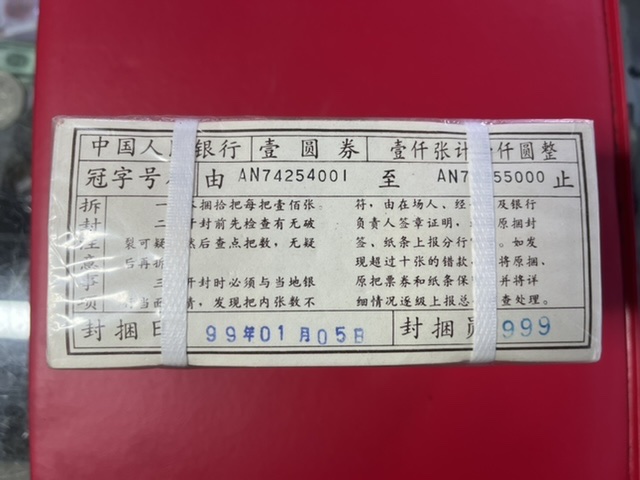 中国人 银行 壹圆券 壹仟张计 仟圆整
冠字号 由 AN74254001 至 AN7 55000 止
拆封 意事项
一 捆拾把每把壹佰张。
二 开封前先检查有无破
裂可疑 然后查点把数，无疑
后再拆
三 开封时必须与当地银
当面 情，发现把内张数不
符，由在场人、经 及银行
负责人签章证明， 原捆封
签、纸条上报分行 。如发
现超过十张的错款， 将原捆、
原把票券和纸条保 并将详
细情况逐级上报总 查处理。
封捆日 99年01月05日 封捆员 999